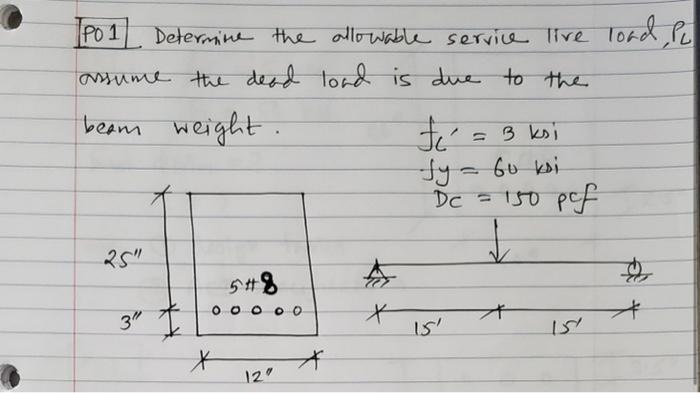 PO1 Determine the allowable service live load, PL
assume the dead load is due to the
beam weight.
fc' = 3 ksi
fy = 60 ksi
DC = 150 pcf
25"
5#8
3"
12"
15'
15'